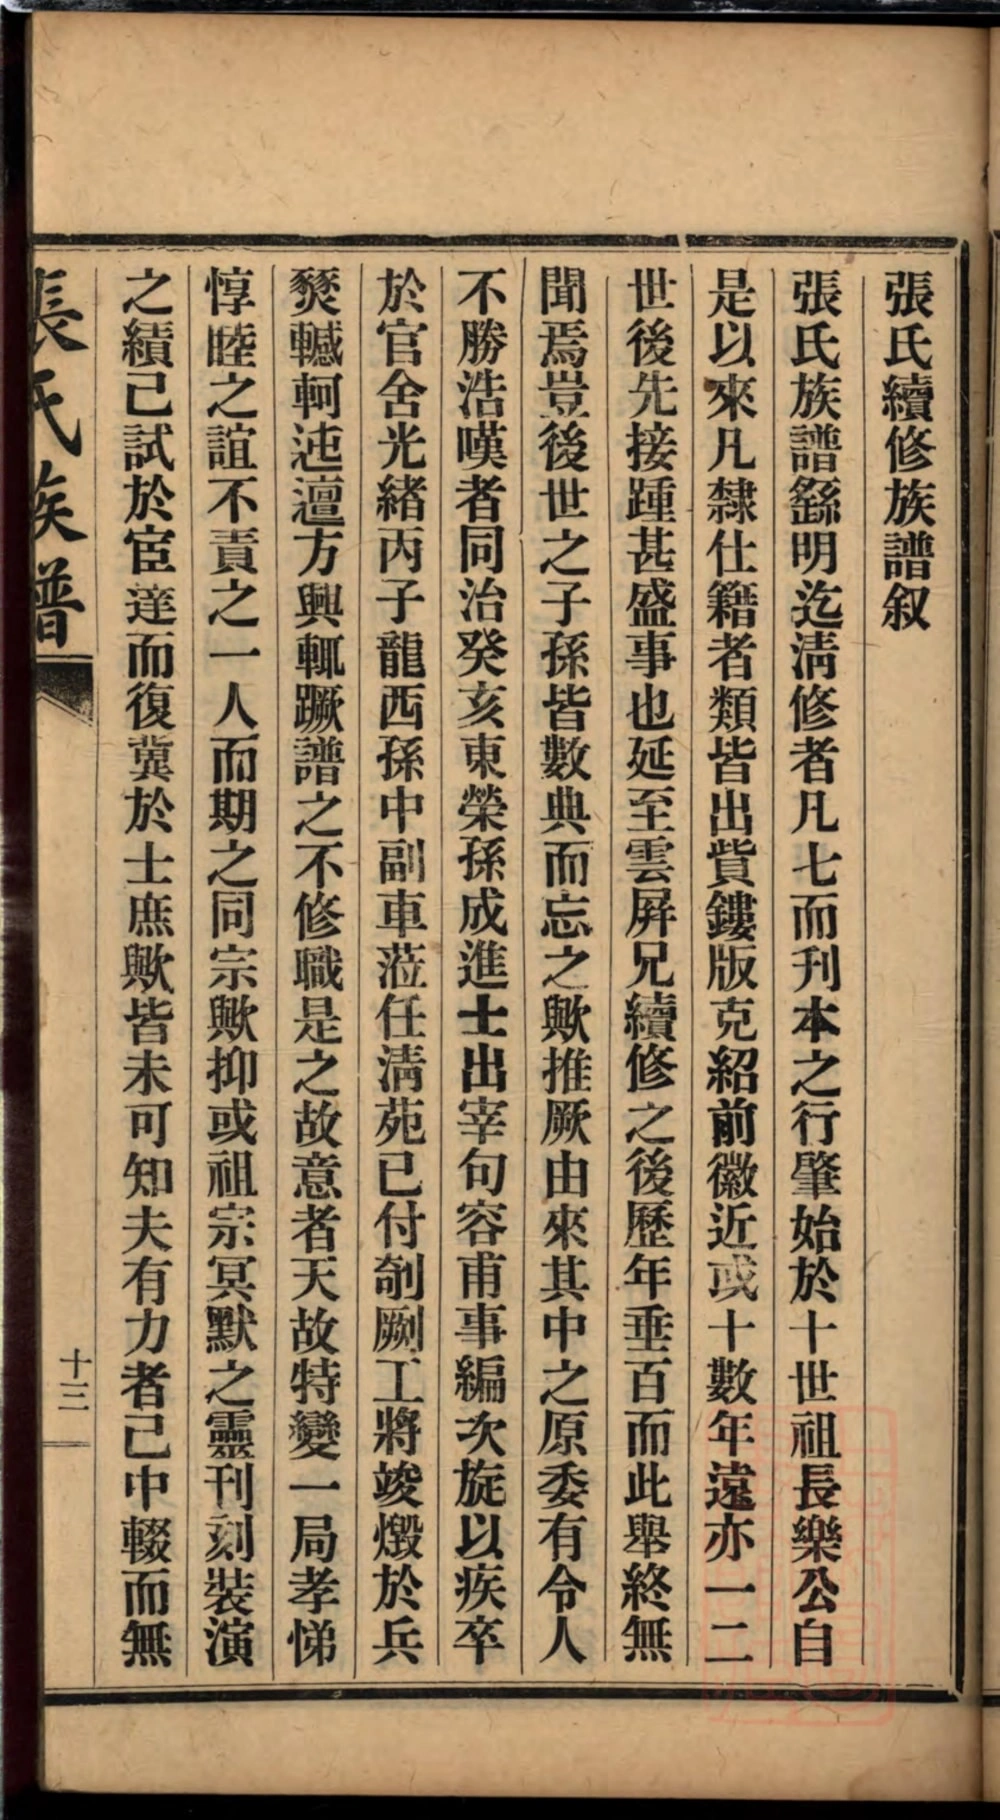 張氏續修族譜叙
張氏族譜繇明迄淸修者凡七而刋本之行肇始於十世祖長樂公自
是以來凡隸仕籍者類皆出貲鏤版克紹前徽近或十數年遠亦一二
世後先接踵甚盛事也延至雲屏兄續修之後歷年垂百而此舉終無
聞焉豈後世之子孫皆數典而忘之歟推厥由來其中之原委有令人
不勝浩嘆者同治癸亥東榮孫成進士出宰句容甫事編次旋以疾卒
於官舍光緒丙子龍西孫中副車蒞任淸苑已付剞劂工將竣燬於兵
燹轗軻迍邅方興輒蹶譜之不修職是之故意者天故特變一局孝悌
惇睦之誼不責之一人而期之同宗歟抑或祖宗冥默之靈刋刻裝演
之績已試於宦達而復冀於士庶歟皆未可知夫有力者已中輟而無
張氏族譜
十三